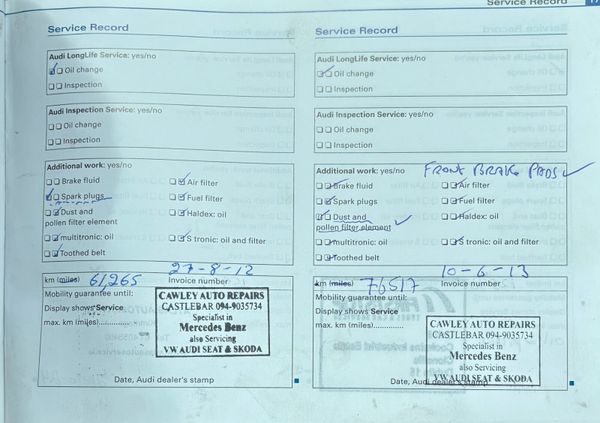 Service Record
Service Record
Audi LongLife Service: yes/no
Oil change
Inspection
Audi Inspection Service: yes/no
Oil change
Inspection
Additional work: yes/no
Brake fluid
Air filter
Spark plugs
Fuel filter
Dust and
pollen filter element
Haldex: oil
multitronic: oil
S tronic: oil and filter
Toothed belt
27-8-12
km (miles) 61,265
Invoice number
Mobility guarantee until:
Display shows Service
max. km (miles)..............
CAWLEY AUTO REPAIRS
CASTLEBAR 094-9035734
Specialist in
Mercedes Benz
also Servicing
VW AUDI SEAT & SKODA
Date, Audi dealer's stamp
Service Record
Audi LongLife Service: yes/no
Oil change
Inspection
Audi Inspection Service: yes/no
Oil change
Inspection
FRONT BRAKE PADS
Additional work: yes/no
Brake fluid
Air filter
Spark plugs
Fuel filter
Dust and
pollen filter element
Haldex: oil
multitronic: oil
S tronic: oil and filter
Toothed belt
10-6-13
km (miles) 76517
Invoice number
Mobility guarantee until:
Display shows Service
max. km (miles)..............
CAWLEY AUTO REPAIRS
CASTLEBAR 094-9035734
Specialist in
Mercedes Benz
also Servicing
VW AUDI SEAT & SKODA
Date, Audi dealer's stamp